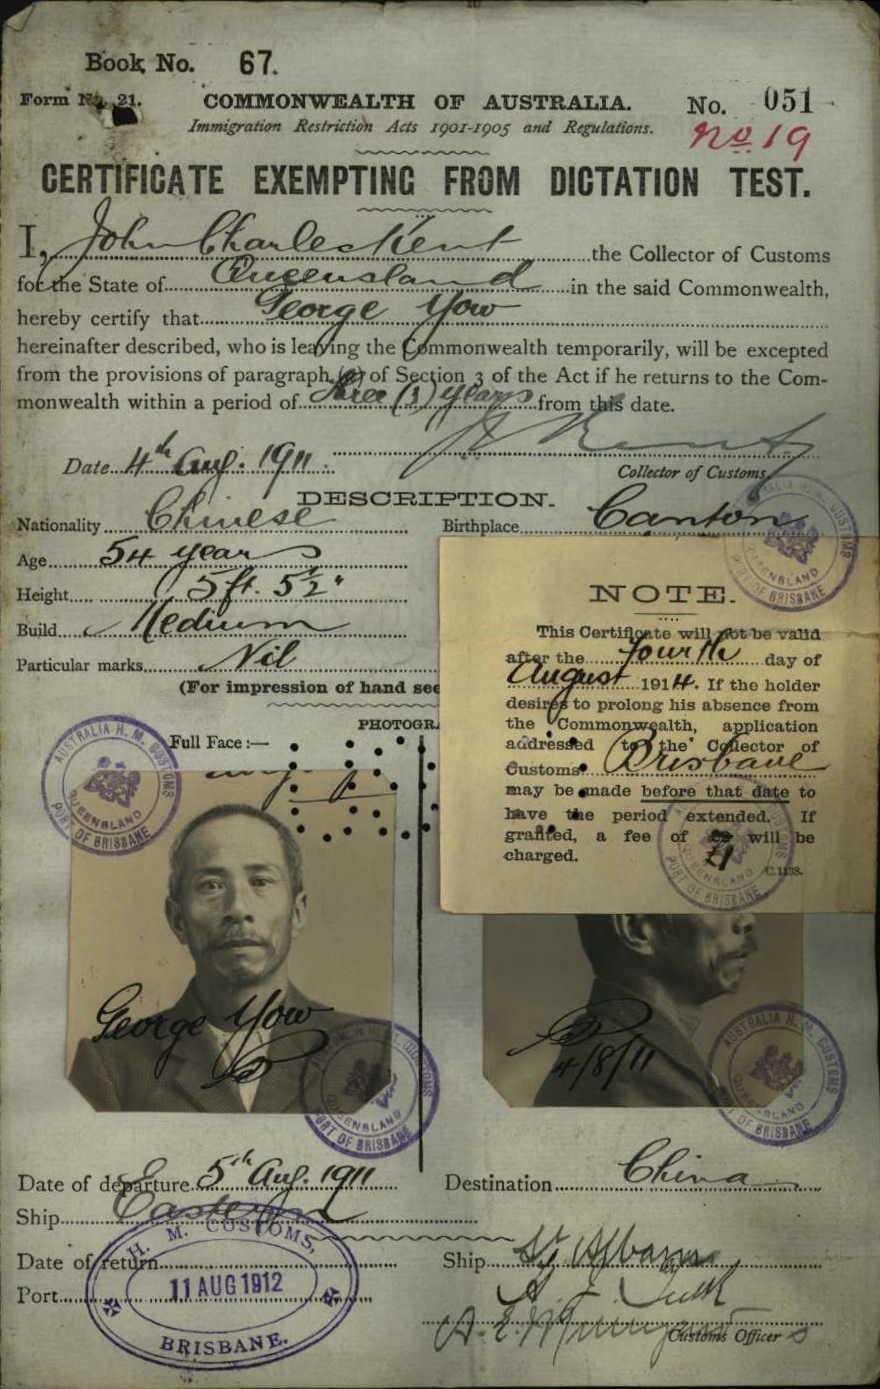 Book No. 67.
Form No. 21. COMMONWEALTH OF AUSTRALIA. No. 051
Immigration Restriction Acts 1901-1905 and Regulations. No 19
CERTIFICATE EXEMPTING FROM DICTATION TEST.
I, John Charles Kent the Collector of Customs
for the State of Queensland in the said Commonwealth,
hereby certify that George Yow
hereinafter described, who is leaving the Commonwealth temporarily, will be excepted
from the provisions of paragraph (a) of Section 3 of the Act if he returns to the Com-
monwealth within a period of three (3) years from this date.
Date 4th Aug. 1911. Kent
Collector of Customs
DESCRIPTION.
Nationality Chinese Birthplace Canton
Age 54 years
Height 5 ft. 5½"
Build Medium
Particular marks Nil
(For impression of hand see
PHOTOGRA
Full Face :—
NOTE.
This Certificate will not be valid
after the fourth day of
August 1914. If the holder
desires to prolong his absence from
the Commonwealth, application
addressed to the Collector of
Customs Brisbane
may be made before that date to
have the period extended. If
granted, a fee of £1 will be
charged.
C.1138.
AUSTRALIA H. M. CUSTOMS
QUEENSLAND
PORT OF BRISBANE
AUSTRALIA H. M. CUSTOMS
QUEENSLAND
PORT OF BRISBANE
QUEENSLAND
PORT OF BRISBANE
George Yow
4/8/11
CUSTOMS
QUEENSLAND
PORT OF BRISBANE
AUSTRALIA H. M. CUSTOMS
QUEENSLAND
PORT OF BRISBANE
Date of departure 5th Aug. 1911 Destination China
Ship Eastern
Date of return Ship St Albans
Port
H. M. CUSTOMS,
11 AUG 1912
BRISBANE.
Customs Officer s